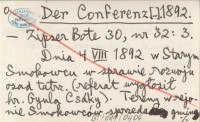 Der Conferenz [] 1892.
— Zipser Bote 30, nr 32: 3.
Dnia 4 VIII 1892 w Starym
Smokowcu w sprawie rozwoju
osad tatrz. (referat wygłosił
hr. Gyula Csáky). Tereny w rejo-
nie Smokowców sprzeda gminy